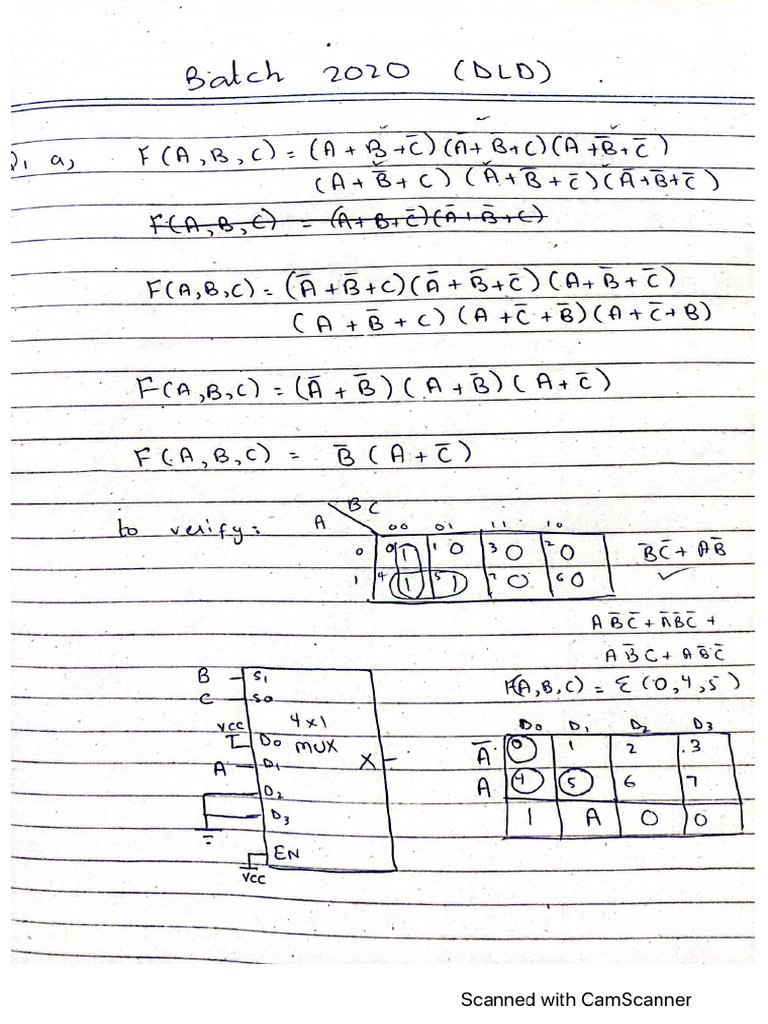 Batch 2020 (DLD).
Q1 a, F(A,B,C) = (A+B+C̅)(A̅+B+C)(A+B̅+C̅)
(A+B̅+C)(A̅+B̅+C̅)(A̅+B+C̅)
F(A,B,C) = (A+B+C̅)(A̅+B̅+C)
F(A,B,C) = (A̅+B̅+C)(A̅+B̅+C̅)(A+B̅+C̅)
(A+B̅+C)(A+C̅+B̅)(A+C̅+B)
F(A,B,C) = (A̅+B̅)(A+B̅)(A+C̅)
F(A,B,C) = B̅(A+C̅)
to verify:
A BC 00 01 11 10
0 0 1 1 0 3 0 2 0 B̅C̅+AB̅
1 4 1 5 1 7 0 6 0
AB̅C̅+A̅B̅C̅+
AB̅C+AB̅C̅
F(A,B,C) = Σ(0,4,5)
B S1
C S0
VCC
4x1
D0 MUX
A D1 X
D2
D3
EN
VCC
D0 D1 D2 D3
A̅ 0 1 2 3
A 4 5 6 7
1 A 0 0
Scanned with CamScanner